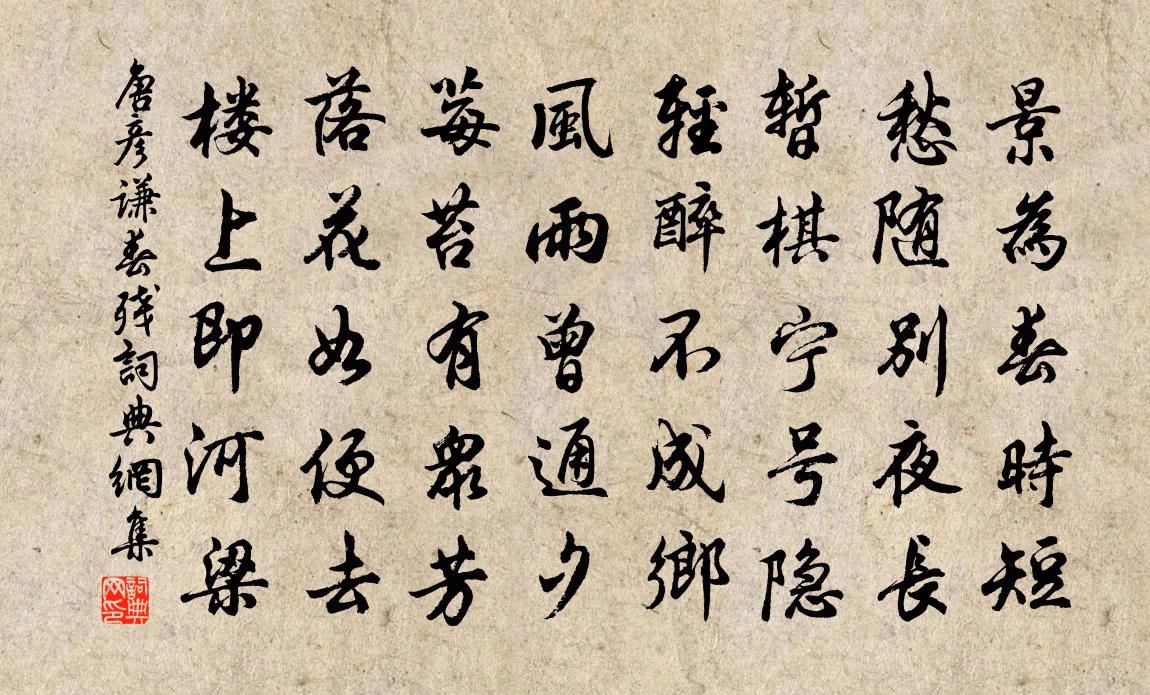 景為春時短
愁随别夜長
暫棋宁号隐
輕醉不成鄉
風雨曾通夕
莓苔有眾芳
落花如便去
楼上即河梁
唐彦謙春残詞典網集
詞典网印